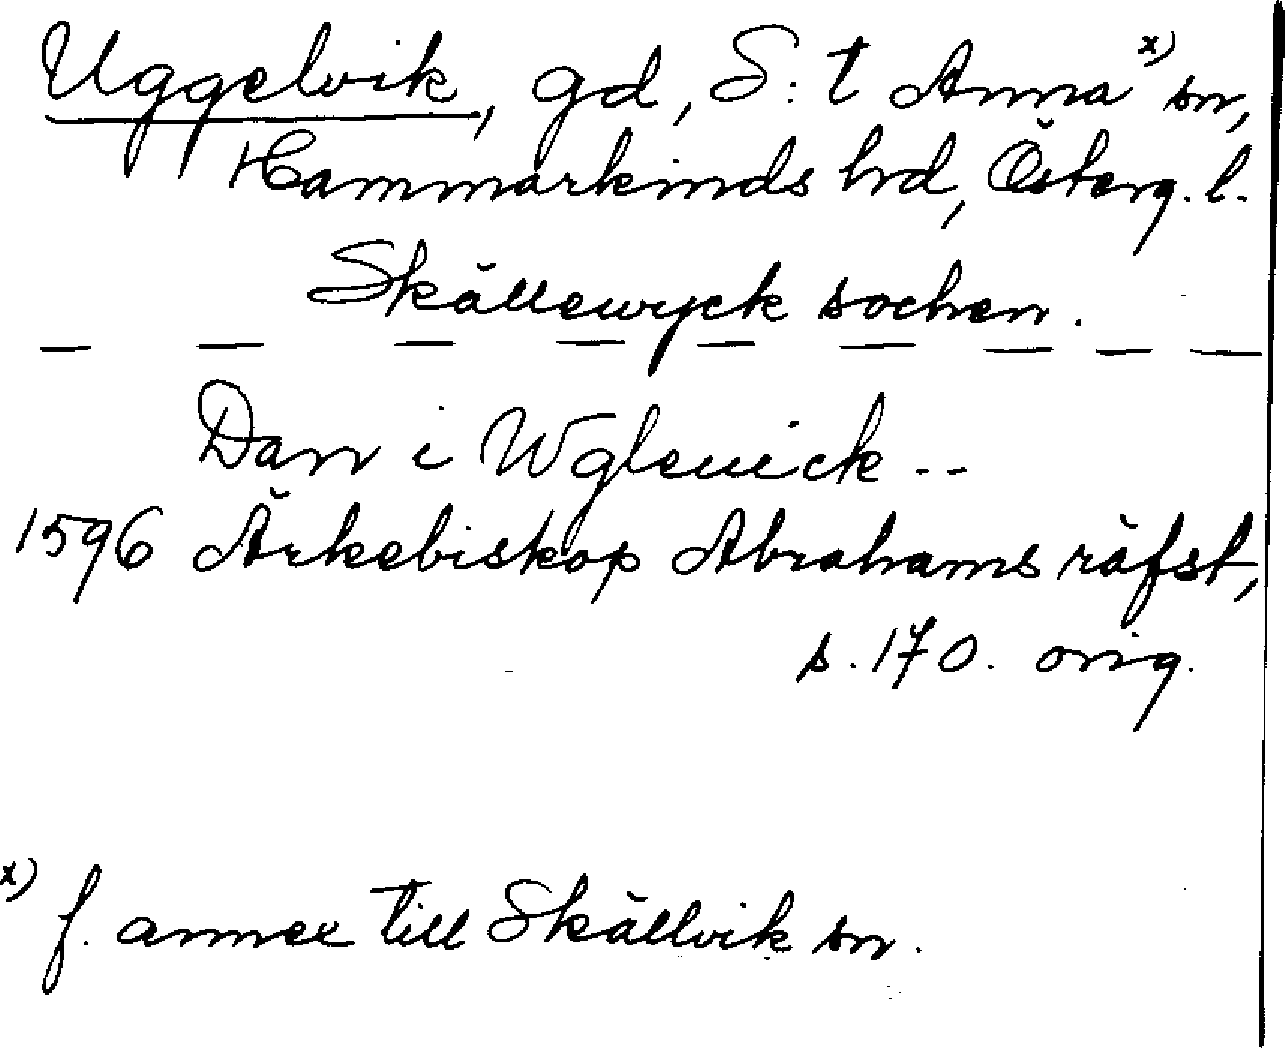 Uggelvik, gd, S:t Anna x) sn,
Hammarkinds hd, Österg. l.
Skällewyck sochen.
— — — — — — — — —
Dan i Wgleuick --
1596 Ärkebiskop Abrahams räfst,
s. 170. orig.
x) f. annex till Skällvik sn.